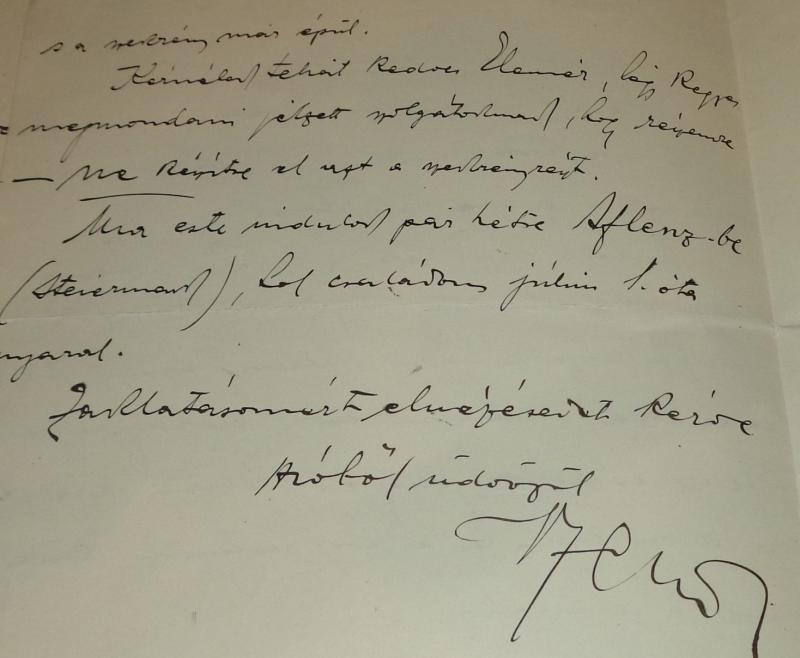 s a szekrény már épül.
Kérnélek tehát kedves Elemér, légy kegyes
megmondani jelzett szolgátoknak, hogy részemre
— ne készítse el azt a szekrényrészt.
Ma este indulok pár hétre Aflenz-be
(Steiermark), hol családom július 1. óta
nyaral.
Zaklatásomért elnézésedet kérve
szívből üdvözöl
Jenő